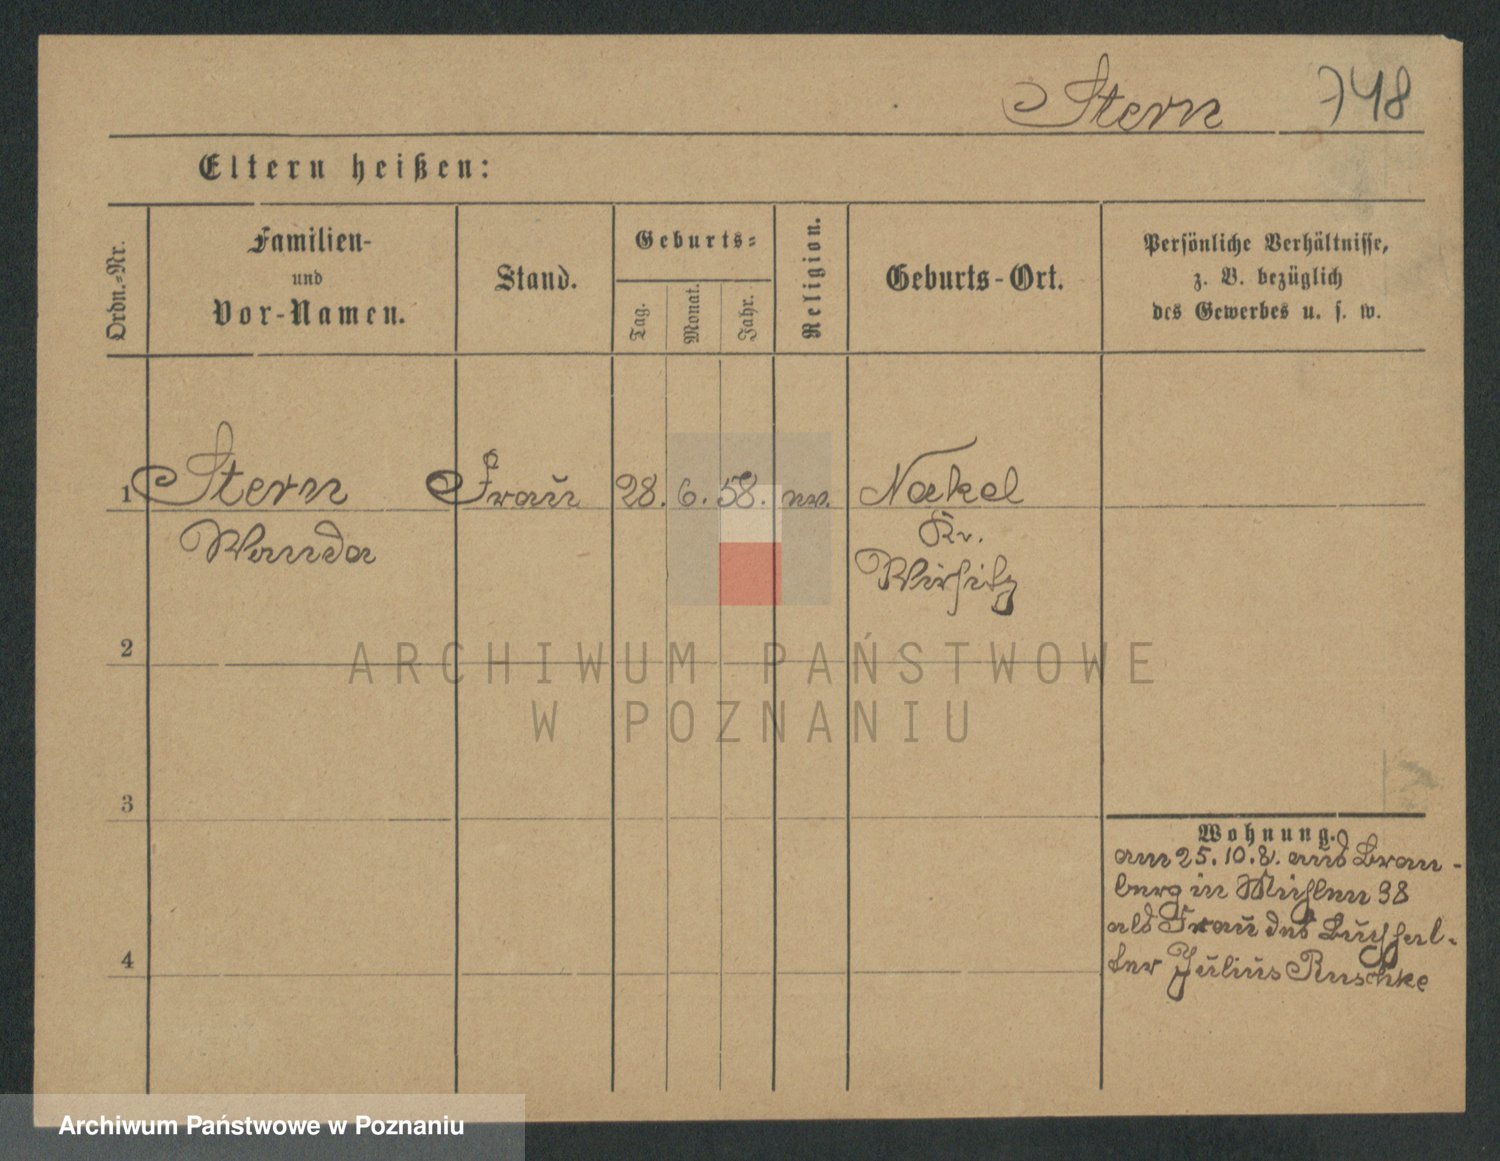 Stern 748
Eltern heißen:
Ordn.-Nr.
Familien-
und
Vor-Namen.
Stand.
Geburts-
Tag.
Monat.
Jahr.
Religion.
Geburts-Ort.
Persönliche Verhältnisse,
z. B. bezüglich
des Gewerbes u. s. w.
1 Stern Frau 28. 6. 58. ev. Nakel
Wanda Kr.
Wirsitz
2
ARCHIWUM PAŃSTWOWE
W POZNANIU
3
Wohnung.
am 25.10.8. aus Brom-
berg in Mühlen 38
als Frau des Buchhal-
ter Julius Ruschke
4
Archiwum Państwowe w Poznaniu